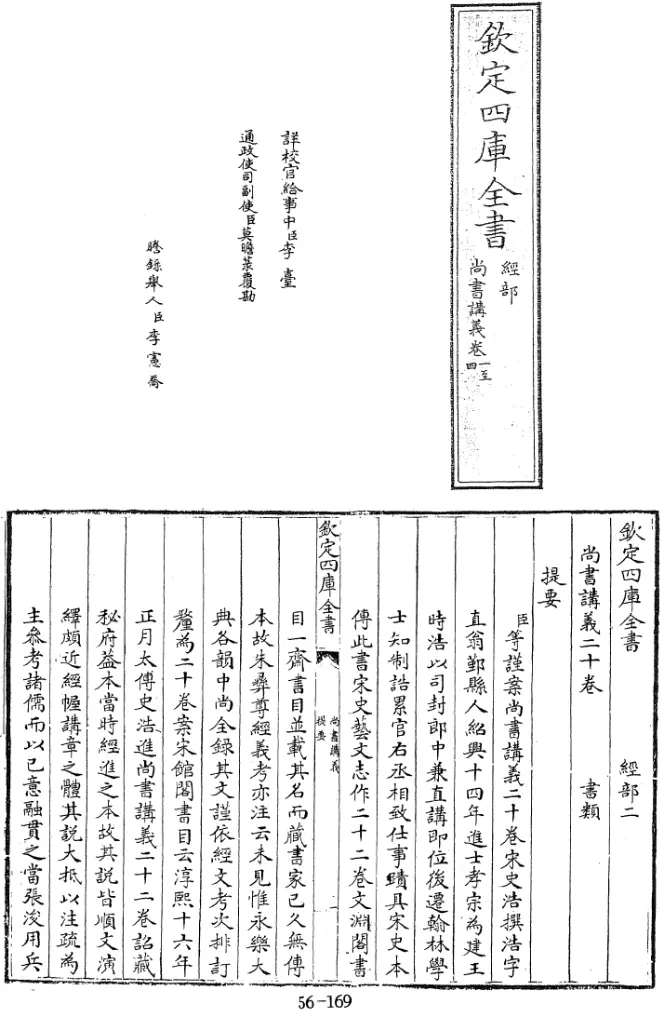 欽定四庫全書
經部
尚書講義卷一至四
詳校官給事中臣李臺
通政使司副使臣莫瞻菉覆勘
謄錄舉人臣李憲喬
欽定四庫全書
經部二
尚書講義二十卷
書類
提要
臣等謹案尚書講義二十卷宋史浩撰浩字
直翁鄞縣人紹興十四年進士孝宗為建王
時浩以司封郎中兼直講即位後遷翰林學
士知制誥累官右丞相致仕事蹟具宋史本
傳此書宋史藝文志作二十二卷文淵閣書
欽定四庫全書
尚書講義
提要
一
目一齋書目並載其名而藏書家已久無傳
本故朱彝尊經義考亦注云未見惟永樂大
典各韻中尚全録其文謹依經文考次排訂
釐為二十卷案宋館閣書目云淳熙十六年
正月太傅史浩進尚書講義二十二卷詔藏
秘府葢本當時經進之本故其説皆順文演
繹頗近經幄講章之體其説大抵以注疏為
主參考諸儒而以己意融貫之當張浚用兵
56-169